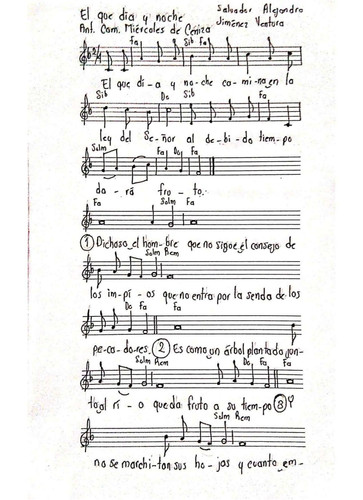 El que día y noche
Salvador Alejandro
Jiménez Ventura
Ant. Com. Miércoles de Ceniza
Fa Sib Fa
El que dí-a y no-che ca-mi-na en la
Sib Do Sib Fa
ley del Señor al de-bi-do tiem-po
Solm Fa Do Fa
da-rá fru-to.
Fa Solm Fa
① Dichoso el hom-bre que no sigue el consejo de
Solm Rem
los impí-os que no entra por la senda de los
Do Fa Fa
pe-ca-dores. ② Es como un árbol plantado jun-
Solm Rem Do Fa Fa
to al rí-o que da fruto a su tiem-po ③ Y
Solm Rem
no se marchi-tan sus ho-jas y cuanto em-